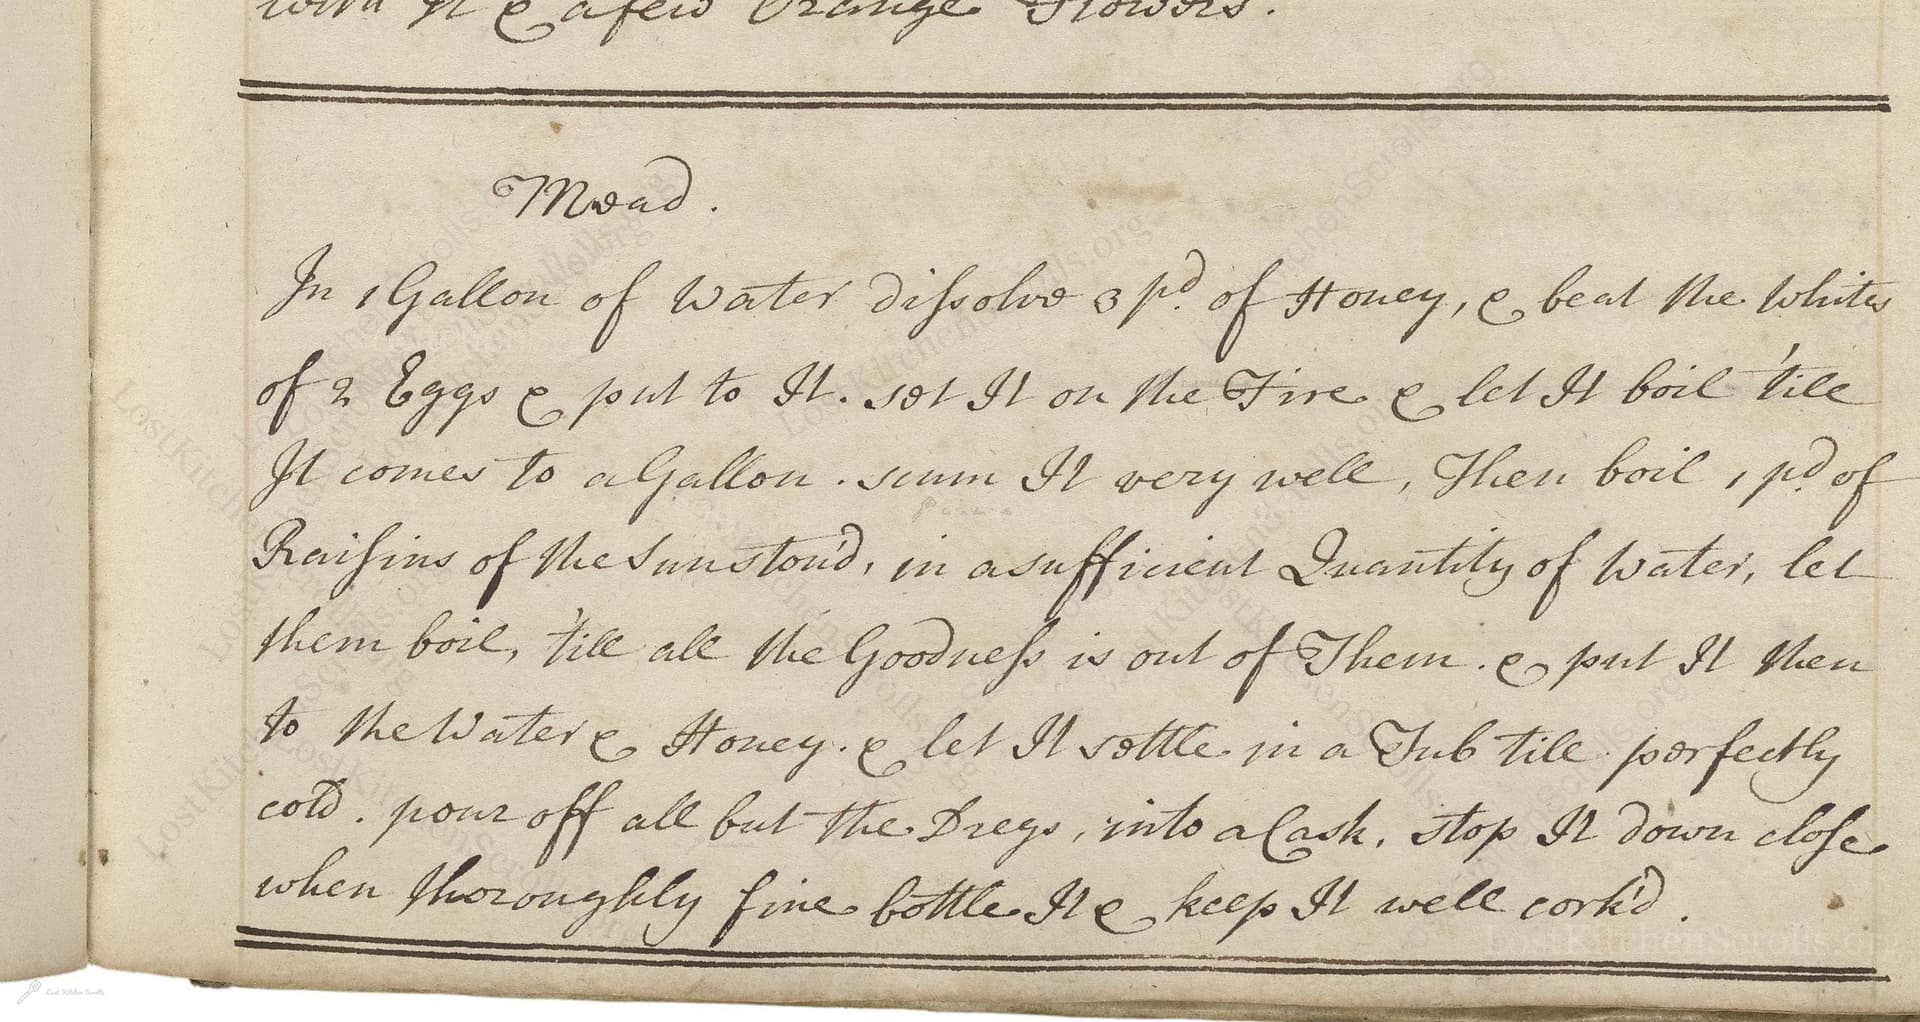 with It & a few Orange Flowers.
Mead.
In 1 Gallon of Water dissolve 3 pd. of Honey, & beat the Whites
of 2 Eggs & put to It. set It on the Fire & let It boil 'till
It comes to a Gallon. scum It very well, Then boil 1 pd. of
Raisins of the Sun ston'd, in a sufficient Quantity of Water, let
them boil, 'till all the Goodness is out of Them. & put It then
to the Water & Honey. & let It settle in a Tub till perfectly
cold. pour off all but the Dregs, into a Cask, stop It down close
when thoroughly fine bottle It & keep It well cork'd.
LostKitchenScrolls.org
Lost Kitchen Scrolls